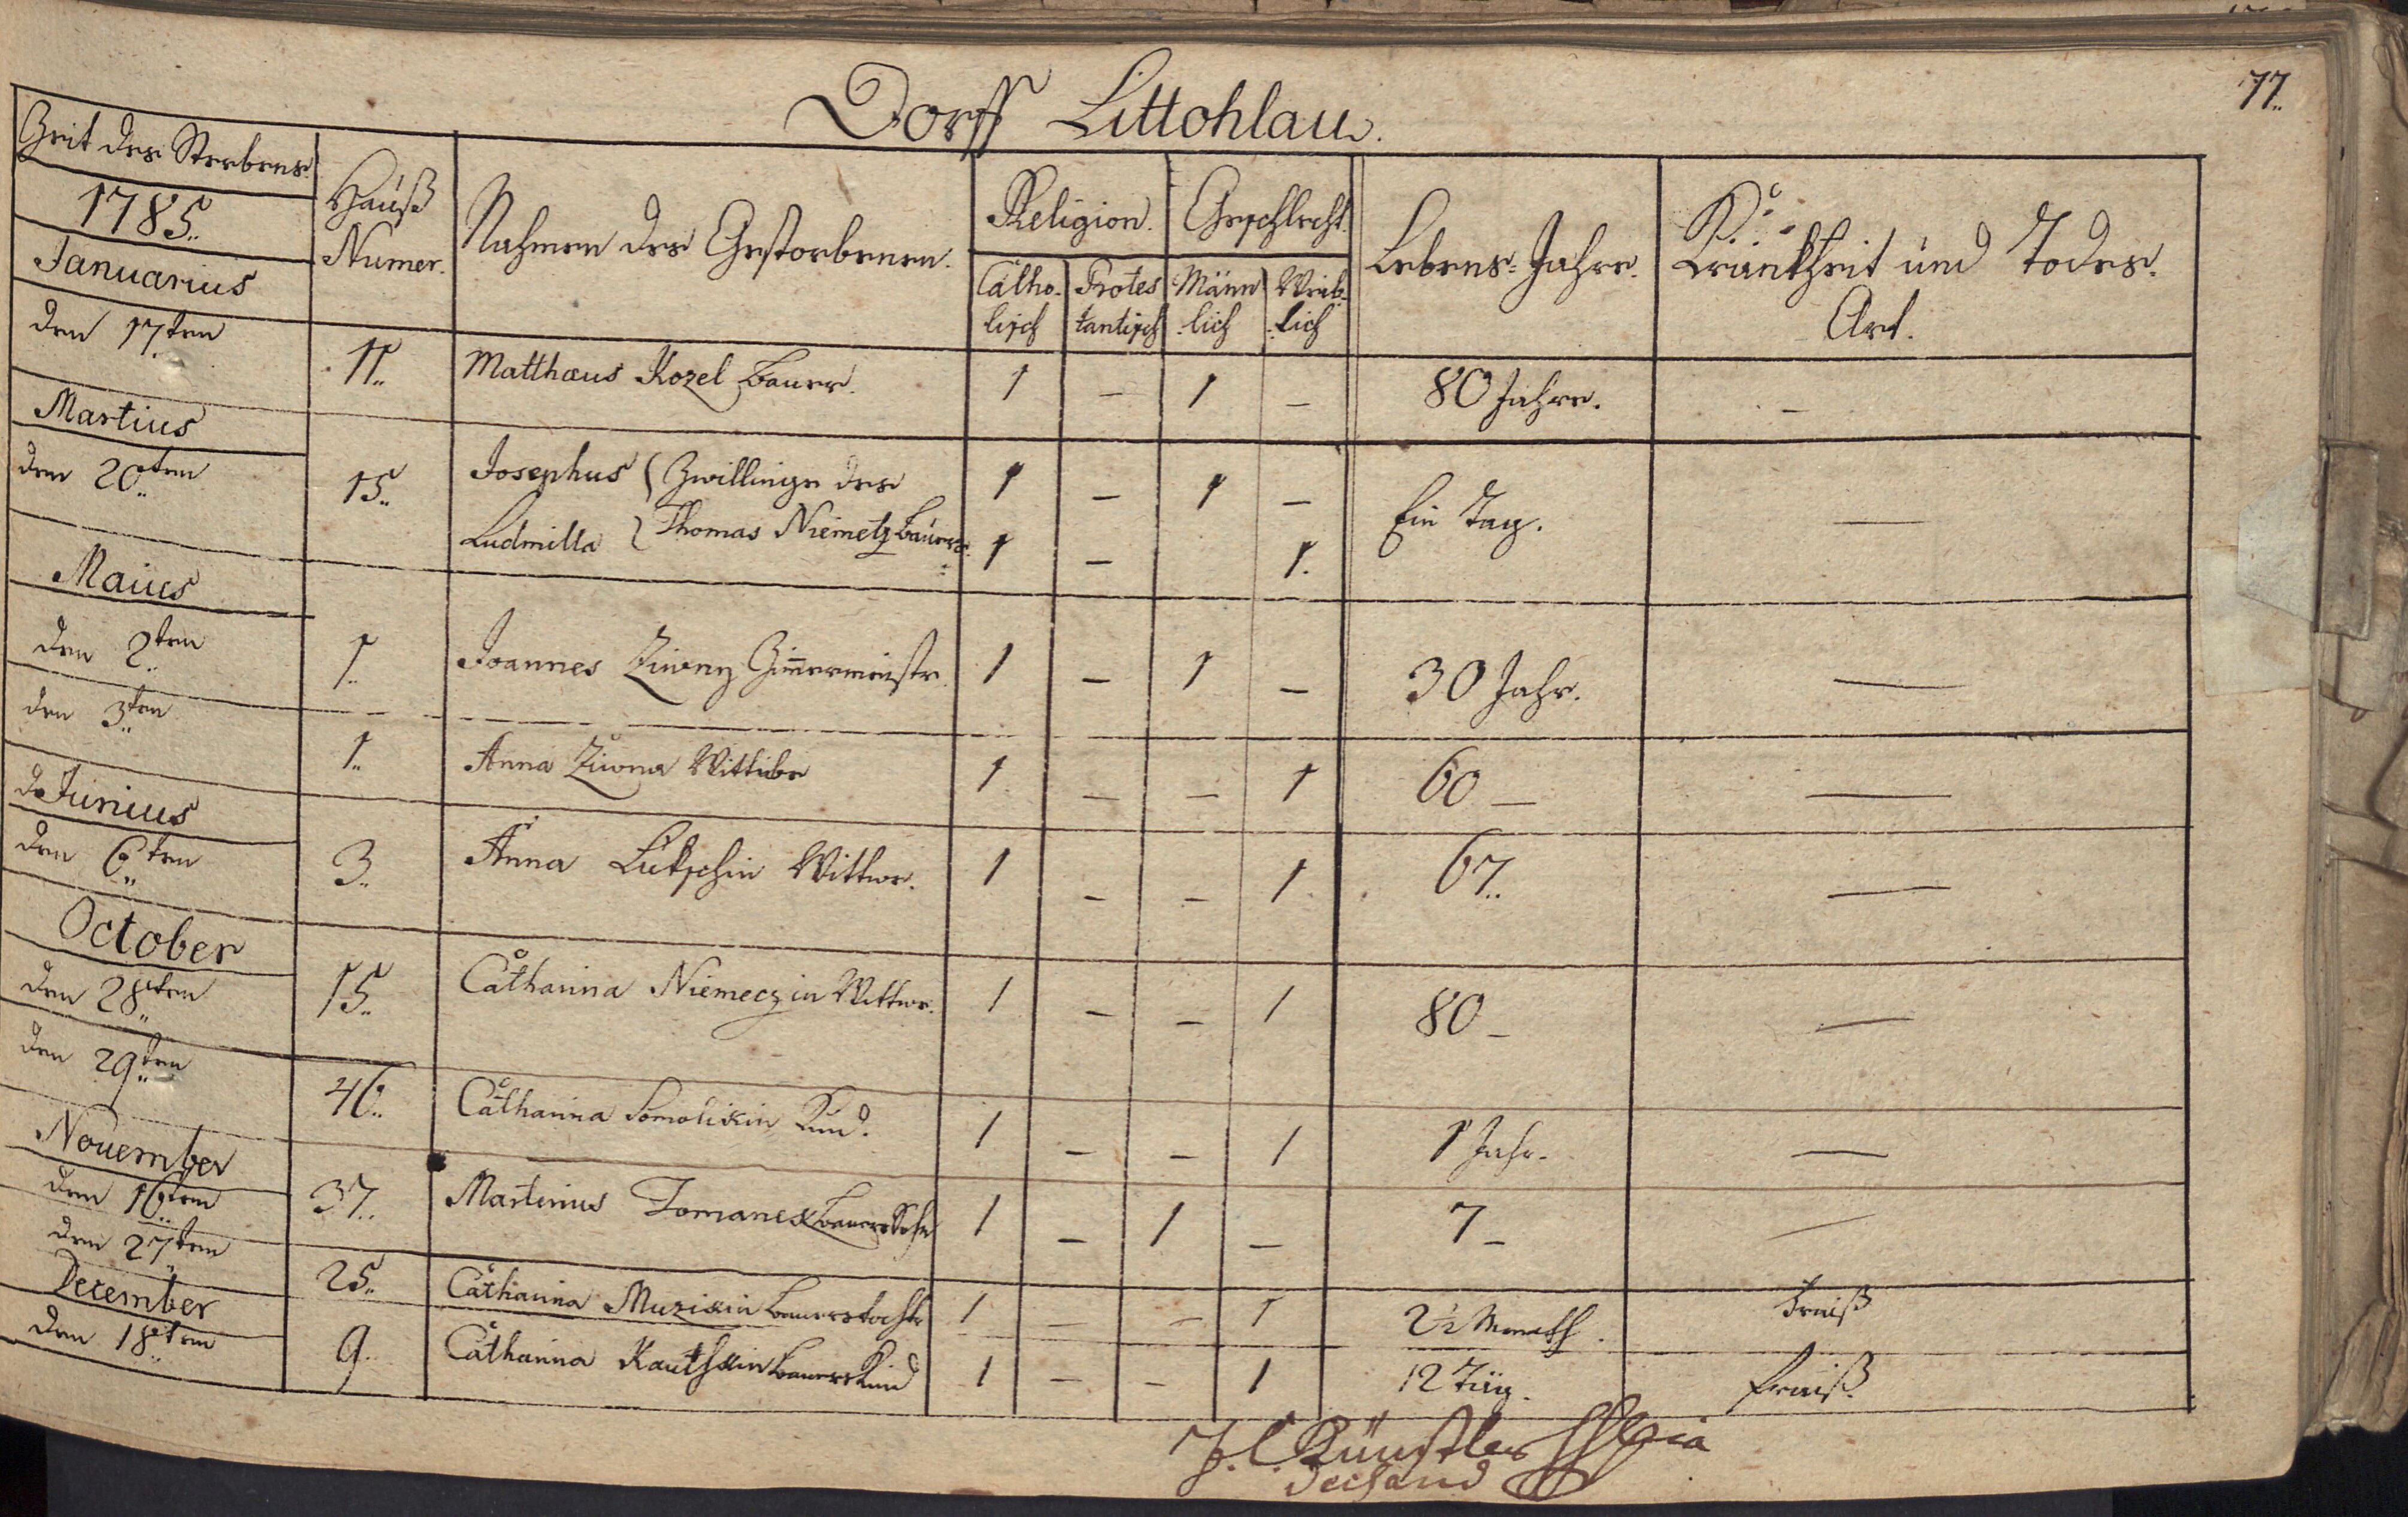 77.
Dorff Littohlau.
Zeit des Sterbens.
1785.
Hauß Numer.
Nahmen des Gestorbenen.
Religion.
Geschlecht.
Catho-lisch
Protes tantisch
Männ lich
Weib-lich
Lebens-Jahre.
Krankheit und Todes-Art.
Januarius
den 17ten 11. Matthæus Kozel Bauer. 1 – 1 – 80 Jahre. –
Martius
den 20ten 15. Josephus ( Zwillinge des 1 – 1 – Ein Tag. –
Ludmilla } Thomas Niemetz Bauers. 1 – 1.
Maius
den 2ten 1. Joannes Ziwny Zim̄ermeistr. 1 – 1 – 30 Jahr. –
den 3ten 1. Anna Ziwna Wittibe 1 – – 1 60 – –
Junius
den 6ten 3. Anna Lukschin Wittwe. 1 – – 1 67. –
October
den 28ten 15. Catharina Niemeczin Wittwe. 1 – – 1 80 – –
den 29ten 46. Catharina Somolikin Kind. 1 – – 1 1 Jahr. –
November
den 16ten 37. Martinus Tomanek Bauers Sohn 1 – 1 – 7 – –
den 27ten 25. Catharina Muzikin Bauerstocht. 1 – – 1 2½ Monath. Frais
December
den 18ten 9. Catharina Kauthskin Bauers Kind 1 – – 1 12 Täg. Fraiß.
J. C. Künstler
Dechand